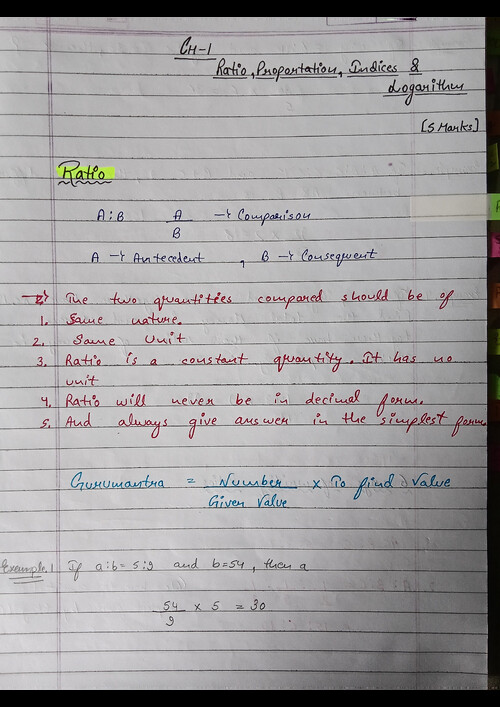 CH-1
Ratio, Proportation, Indices &
Logarithm
[5 Marks]
Ratio
A:B A/B → Comparison
A → Antecedent , B → Consequent
The two quantities compared should be of
1. Same nature.
2. Same Unit
3. Ratio is a constant quantity. It has no
unit
4. Ratio will never be in decimal form.
5. And always give answer in the simplest form
Gurumantra = Number/Given Value × To find Value
Example.1 If a:b= 5:9 and b=54, then a
54/9 × 5 = 30